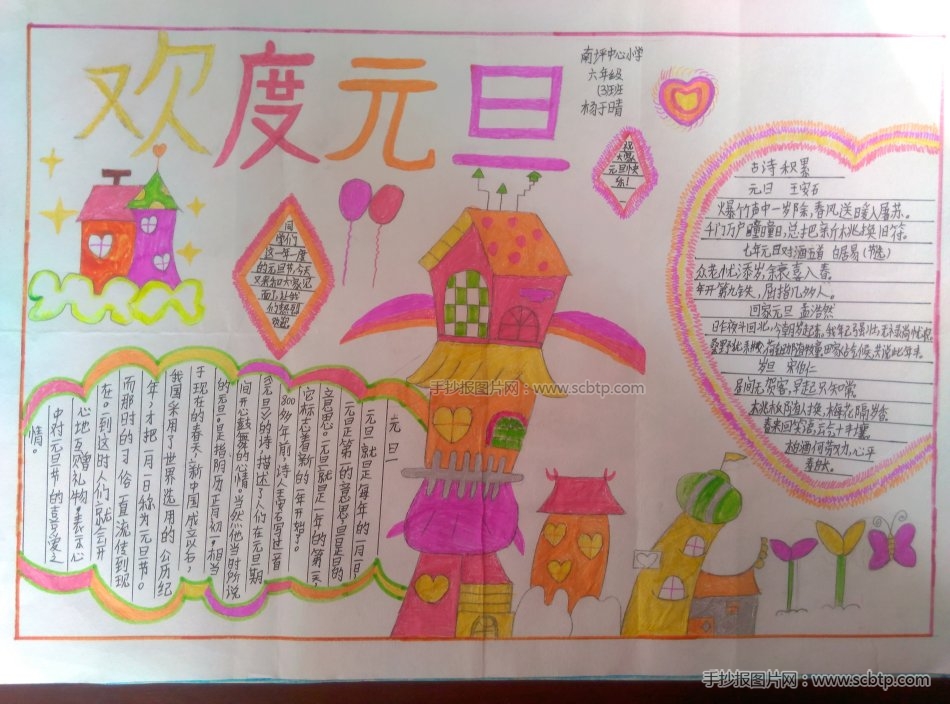 欢度元旦
南坪中心小学
六年级
(3)班
杨于晴
祝
大家
元旦快
乐!
同
学们
这一年一度
的元旦节今天
又来和大家见
面了,让我
们
欢迎
古诗积累
元日 王安石
爆竹声中一岁除,春风送暖入屠苏。
千门万户瞳瞳日,总把新桃换旧符。
七年元日对酒五首 白居易(节选)
众老忧添岁,余衰喜入春。
年开第九秩,屈指几多人。
回家元旦 孟浩然
昨夜斗回北,今朝岁起东,我年已强壮,无禄尚忧农。
岁旦 宋伯仁
居间无贺客,早起只如常。
桃板随人换,梅花隔岁香。
春来回笑语,
柏酒何劳劝,心平
寿自长。
元旦
元旦就是每年的一月一日,
元旦是第一的意思,旦是日的
意思。元旦就是一年的第一天,
它标志着新的一年开始了。
800多年前,诗人王安石写过一首
《元旦》的诗,描述了人们在元旦期
间开心鼓舞的心情。当然他当时所说
的元旦,是指阴历正月初一,相当
于现在的春天,新中国成立以后,
我国采用了世界选用的公历纪
年,才把一月一日称为元旦节。
而那时的习俗一直流传到现
在。一到这时人们就会开
心地互赠礼物,表示心
中对元旦节的喜爱之
情。
手抄报图片网:www.scbtp.com
手抄报图片网:www.scbtp.com